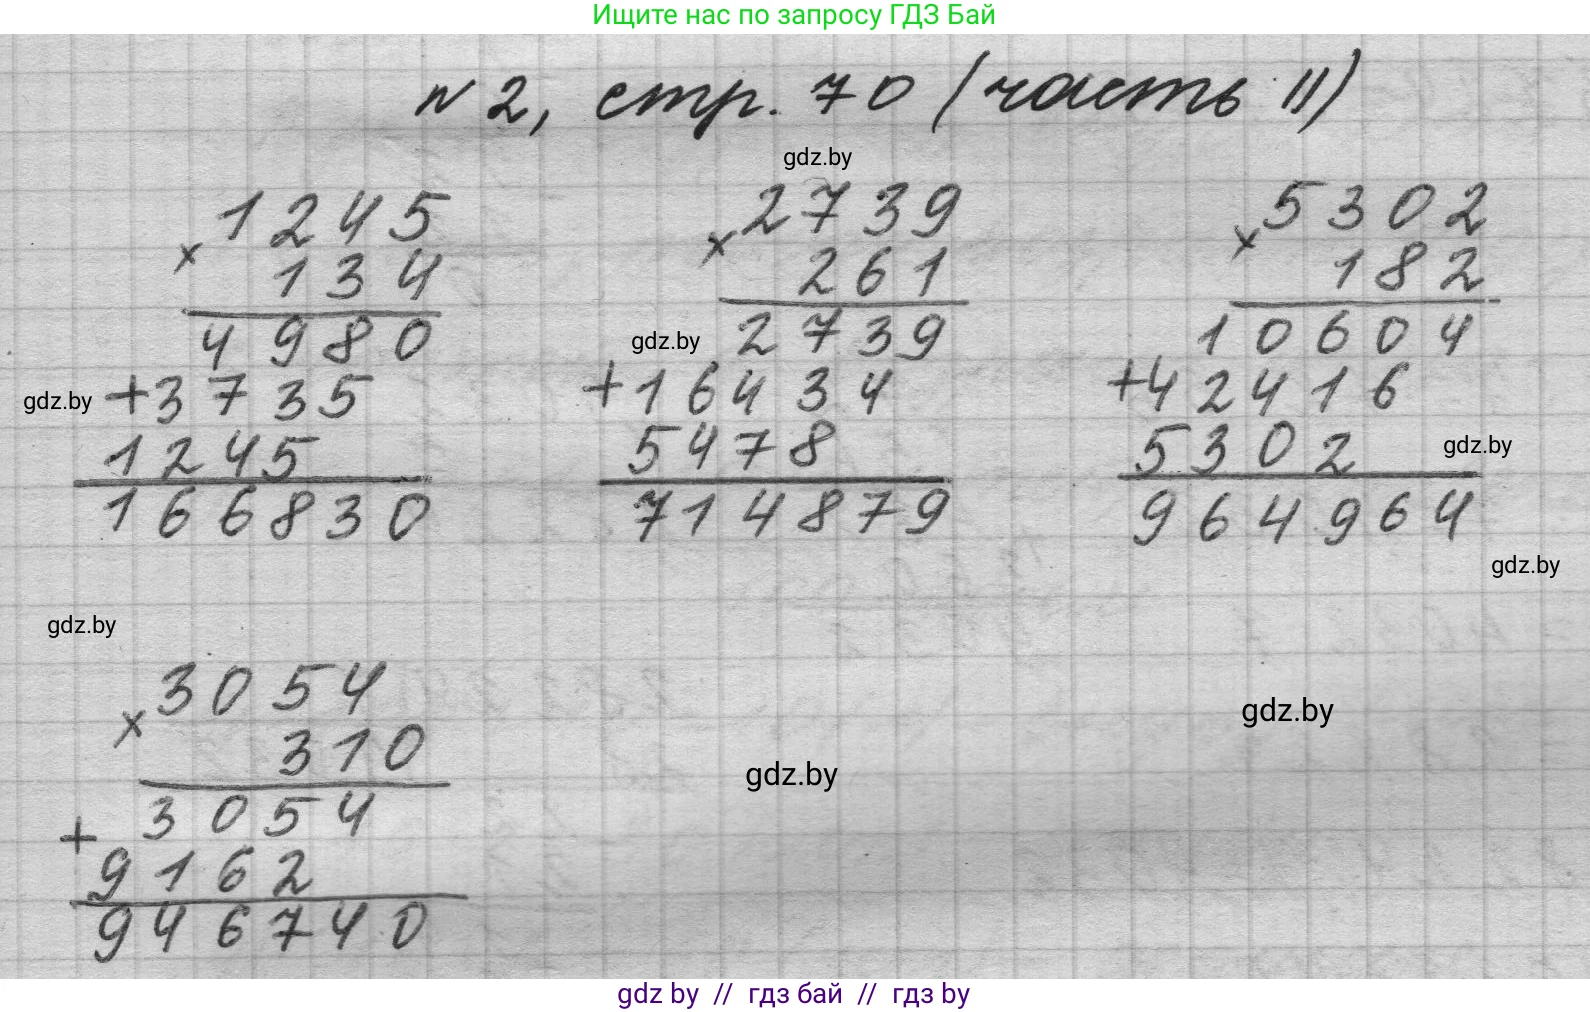 Ищите нас по запросу ГДЗ Бай
№ 2, стр. 70 (часть II)
gdz.by
× 1245
134
4980
+3735
1245
166830
gdz.by
× 2739
261
2739
+16434
5478
714879
gdz.by
× 5302
182
10604
+42416
5302
964964
gdz.by
gdz.by
gdz.by
× 3054
310
3054
+
9162
946740
gdz.by
gdz.by
gdz by // гдз бай // гдз by